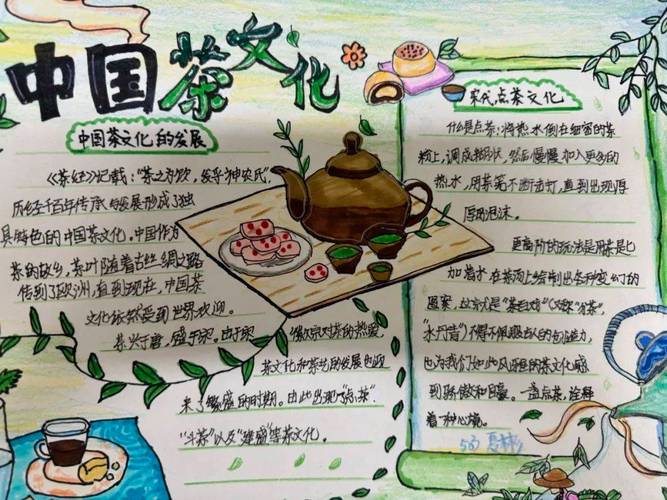 中国茶文化
中国茶文化的发展
《茶经》记载:"茶之为饮,发乎神农氏",
历经千百年传承的发展形成了独
具特色的中国茶文化。中国作为
茶的故乡,茶叶随着古丝绸之路
传到了欧洲,直到现在,中国茶
文化依然受到世界欢迎。
茶兴于唐,盛于宋。由于宋
徽宗对茶的热爱
茶文化和茶艺的发展也迎
来了繁盛的时期。由此出现了"点茶"
"斗茶"以及等茶文化。
宋代点茶文化
什么是点茶:将热水倒在细密的茶
粉上,调成糊状,然后慢慢加入更多的
热水,用茶筅不断击打,直到出现厚
厚的泡沫。
更高阶的玩法是用茶匕
加着水在茶沫上绘制出各种变幻的
图案,这就是"茶百戏"(又称"分茶",
"水丹青")不得不佩服古人的创造力,
也为我们如此风雅的茶文化感
到骄傲和自豪。一盏点茶,诠释
着一种心境。